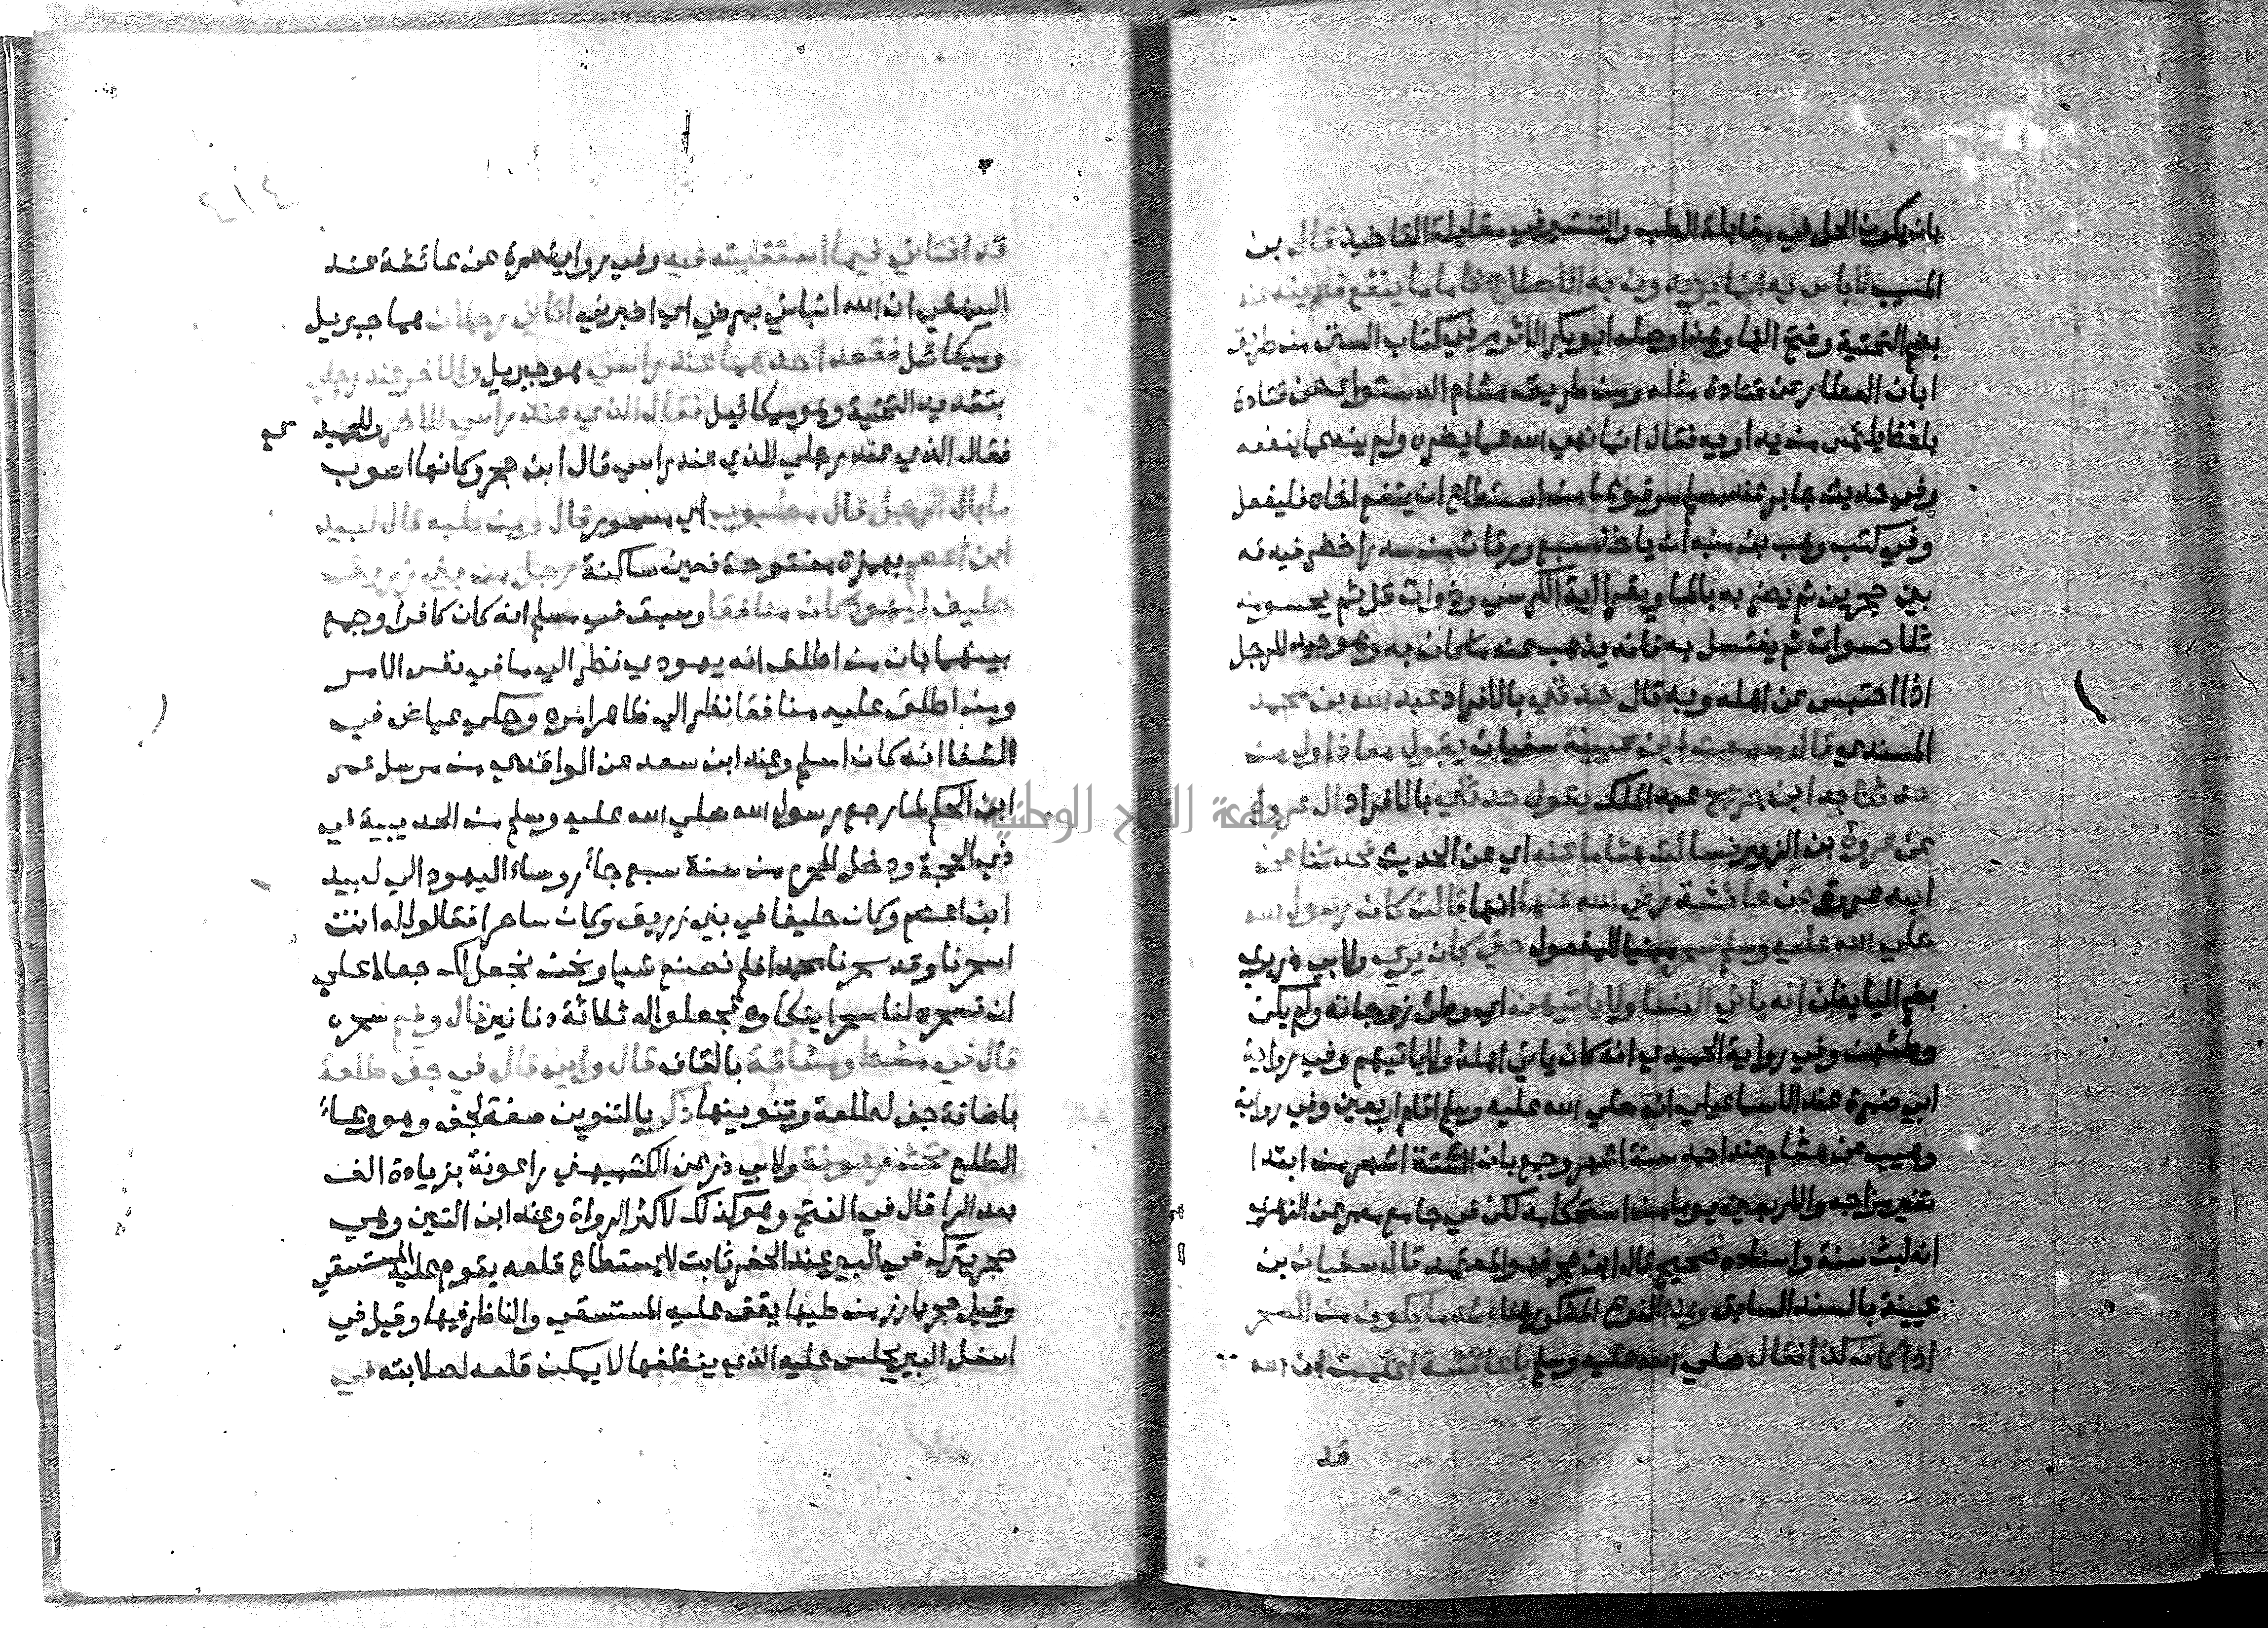 بان يكون الحل في مقابلة الطب والتنشير في مقابلة القاضية قال بن
المسيب لا باس به انما يريدون به الاصلاح فاما ما ينفع فلم ينه عنه
بضم التحتية وفتح الها وهذا وصله ابو بكر الاثرم في كتاب السنن من طريق
ابان العطار عن قتادة مثله ومن طريق هشام الدستواي عن قتادة
بلفظ يلتمس من يداويه فقال انما نهى الله عما يضره ولم ينه عما ينفعه
وفي حديث جابر عند مسلم مرفوعا من استطاع ان ينفع اخاه فليفعل
وفي كتب وهب بن منبه ان ياخذ سبع ورقات من سدر اخضر فيدقه
بين حجرين ثم يضربه بالما ويقرا اية الكرسي وذوات قل ثم يحسو منه
ثلاث حسوات ثم يغتسل به فانه يذهب عنه ما كان به وهو جيد للرجل
اذا احتبس عن اهله وبه قال حدثني بالافراد عبد الله بن محمد
المسندي قال سمعت ابن عيينة سفيان يقول معاذ اول من
حدثنا به ابن جريج عبد الملك يقول حدثني بالافراد ال عروة
عن عروة بن الزبير فسالت هشاما عنه اي عن الحديث فحدثنا عن
ابيه عروة عن عائشة رضي الله عنها انها قالت كان رسول الله
صلي الله عليه وسلم سحر مبنيا للمفعول حتي كان يري ولابي ذر يري
بضم اليا يظن انه ياتي النسا ولا ياتيهن اي وطئ زوجاته ولم يكن
وطئهن وفي رواية الحميدي انه كان ياتي اهله ولا ياتيهم وفي رواية
ابي ضمرة عند الاسماعيلي انه صلي الله عليه وسلم اقام اربعين وفي رواية
وهيب عن هشام عند احمد ستة اشهر وجمع بان الستة اشهر من ابتدا
تغير مزاجه والاربعين يوما من استحكامه لكن في جامع معمر عن الزهري
انه لبث سنة واسناده صحيح قال ابن حجر فهو المعتمد قال سفيان بن
عيينة بالسند السابق وهذا النوع المذكور هنا اشد ما يكون من السحر
اذا كان كذا فقال صلي الله عليه وسلم يا عائشة اعلمت ان الله
قد
قد افتاني فيما استفتيته فيه وفي رواية عمرة عن عائشة عند
البيهقي ان الله انباني بمرضي اي اخبرني اتاني رجلان هما جبريل
وميكائيل فقعد احدهما عند راسي هو جبريل والاخر عند رجلي
بتشديد التحتية وهو ميكائيل فقال الذي عند راسي للاخر وللحميدي
فقال الذي عند رجلي للذي عند راسي قال ابن حجر وكانها اصوب
ما بال الرجل قال مطبوب اي مسحور قال ومن طبه قال لبيد
ابن اعصم بهمزة مفتوحة فعين ساكنة رجل من بني زريق
حليف ليهود كان منافقا وسبق في مسلم انه كان كافرا وجمع
بينهما بان من اطلق انه يهودي نظر الي ما في نفس الامر
ومن اطلق عليه منافقا نظر الي ظاهر امره وحكي عياض في
الشفا انه كان اسلم وعند ابن سعد عن الواقدي من مرسل عمر
ابن الحكم لما رجع رسول الله صلي الله عليه وسلم من الحديبية في
ذي الحجة ودخل المحرم من سنة سبع جاء روساء اليهود الي لبيد
ابن اعصم وكان حليفا في بني زريق وكان ساحرا فقالوا له انت
اسحرنا وقد سحرنا محمدا فلم نصنع شيا ونحن نجعل لك جعلا علي
ان تسحره لنا سحرا ينكاوه فجعلوا له ثلاثة دنانير قال وفيم سحره
قال في مشط ومشاقة بالقاف قال واين قال في جف طلعة
باضافة جف لطلعة وتنوينها ذكر بالتنوين صفة لجف وهو وعاء
الطلع تحت رعوفة ولابي ذر عن الكشميهني راعوفة بزيادة الف
بعد الرا قال في الفتح وهو كذلك لاكثر الرواة وعند ابن التين وهي
حجر يترك في البير عند الحفر ثابت لا يستطاع قلعه يقوم عليه المستقي
وقيل حجر بارز من طيها يقف عليه المستسقي والناظر فيها وقيل في
اسفل البير يجلس عليه الذي ينظفها لا يمكن قلعه لصلابته في
جامعة النجاح الوطنية